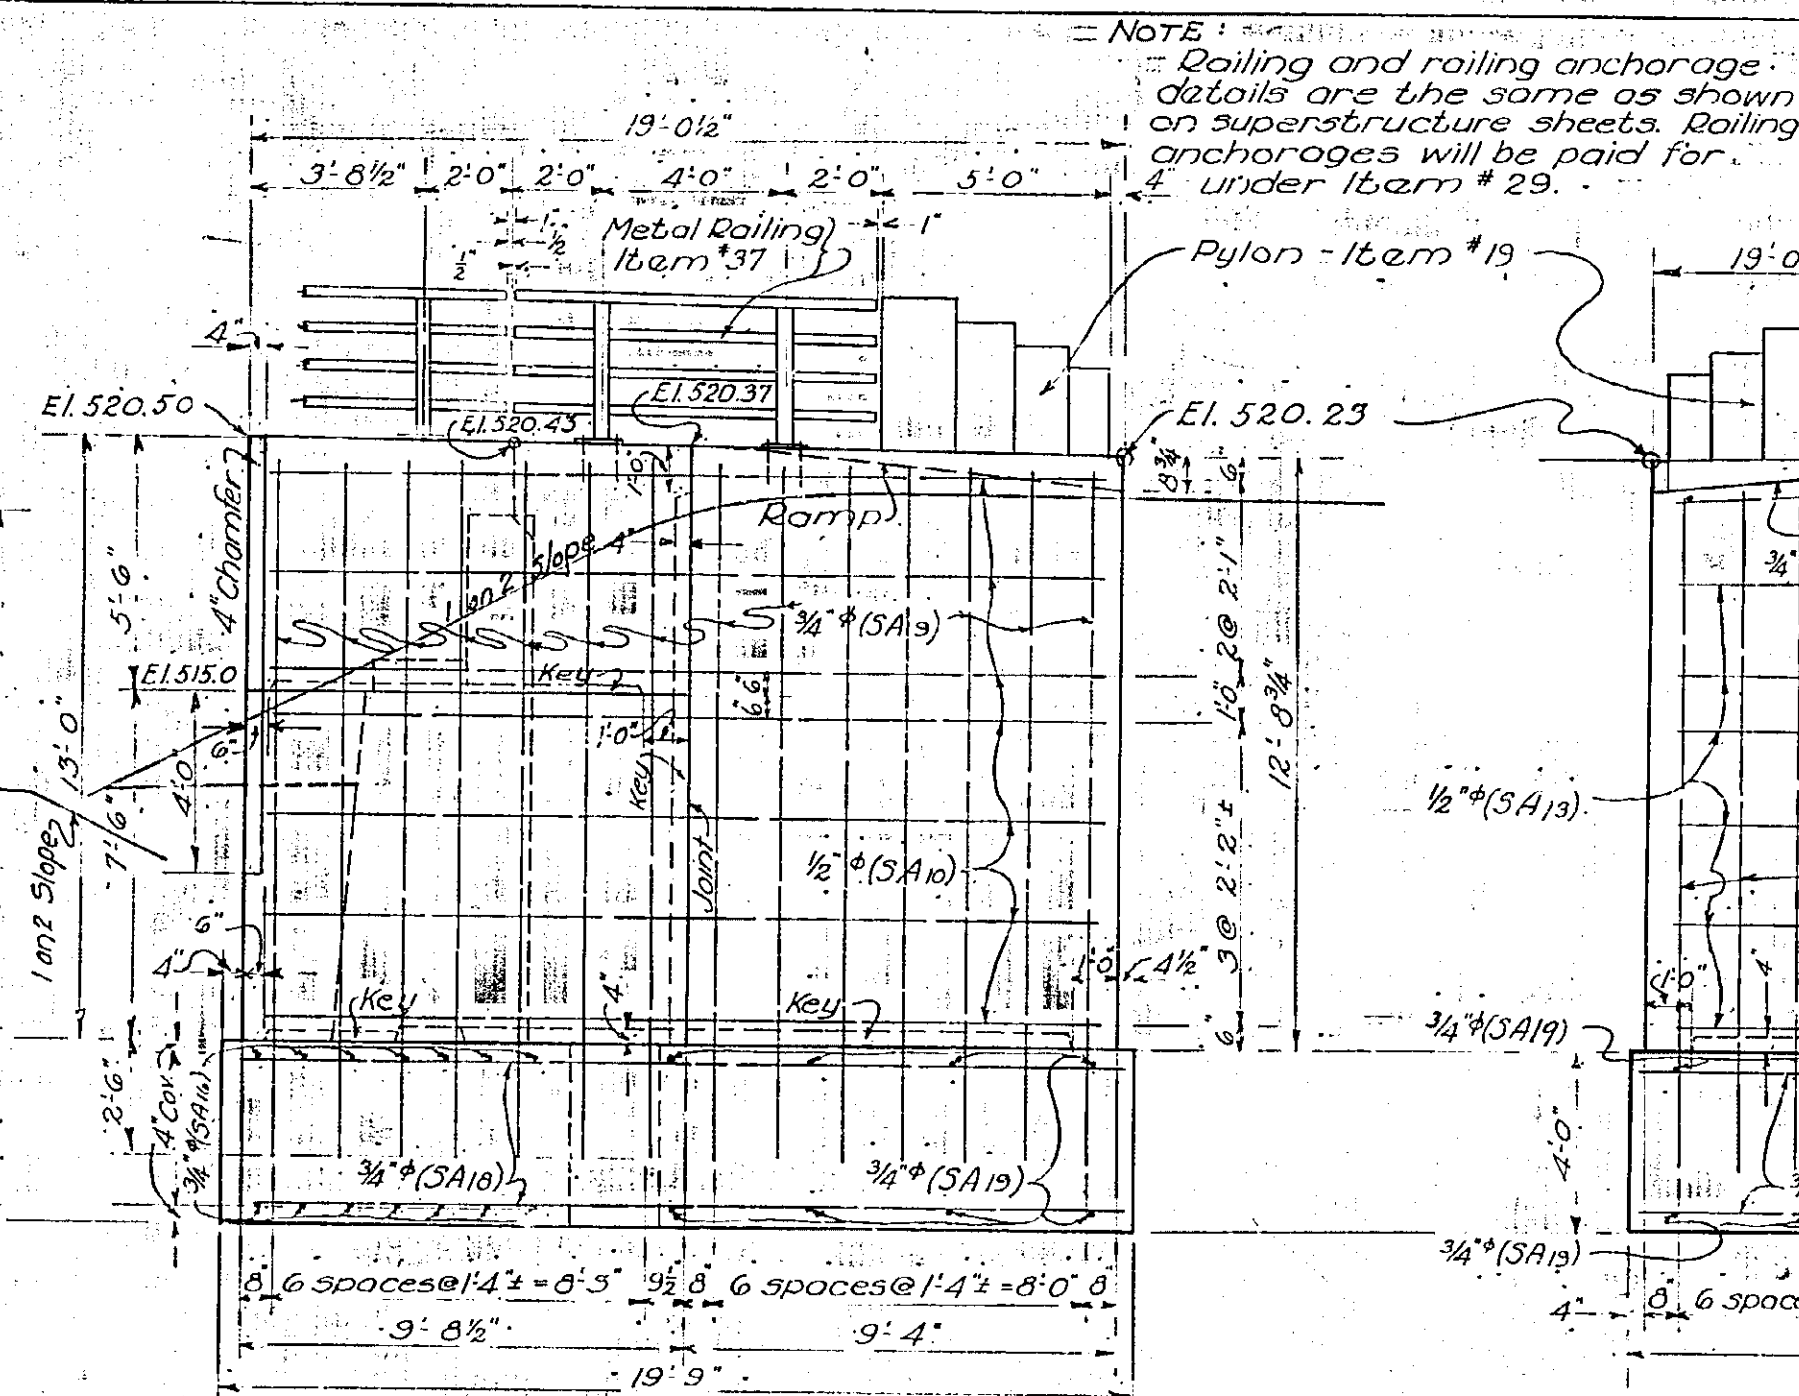 NOTE:
Railing and railing anchorage
details are the same as shown
on superstructure sheets. Railing
anchorages will be paid for
under Item #29.
19'-0½"
3'-8½" 2'-0" 2'-0" 4'-0" 2'-0" 5'-0" 4"
1"
½
½"
Metal Railing
Item #37
1"
Pylon - Item #19
19'-0
4"
El. 520.50
El. 520.43
El. 520.37
El. 520.23
4" Chamfer
1'-0"
8¾"
6"
Ramp
1 on 2 Slope
4"
5'-6"
2 @ 2'-1"
¾"
¾"φ(SA19)
El. 515.0
Key
6" 6"
1'-0"
12'-8¾"
13'-0"
6"
4'-0"
1'-0"
Key
7'-6"
1 on 2 Slope
½"φ(SA10)
½"φ(SA13)
Joint
3 @ 2'-2"±
6"
4"
Key
4"
Key
1'-0"
4½"
6"
1'-0"
4"
¾"φ(SA19)
2'-6"
4" Cov.
¾"φ(SA16)
¾"φ(SA18)
¾"φ(SA19)
4'-0"
¾"φ(SA19)
8" 6 spaces@1'-4"± = 8'-3" 9½" 8" 6 spaces@1'-4"± = 8'-0" 8"
4" 8" 6 spac
9'-8½"
9'-4"
19'-9"